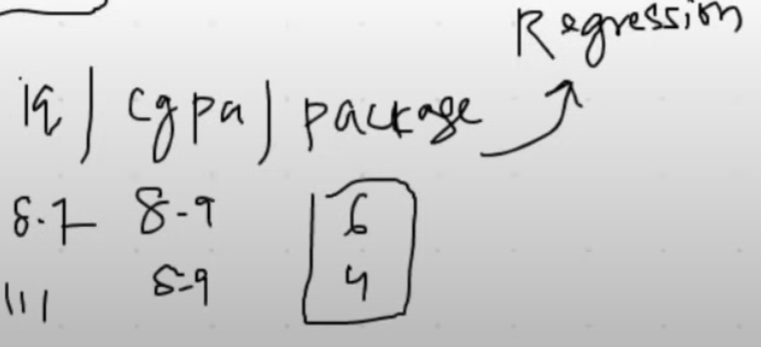 Regression
iq | cgpa | package
8.7 8.9 6
111 8.9 4